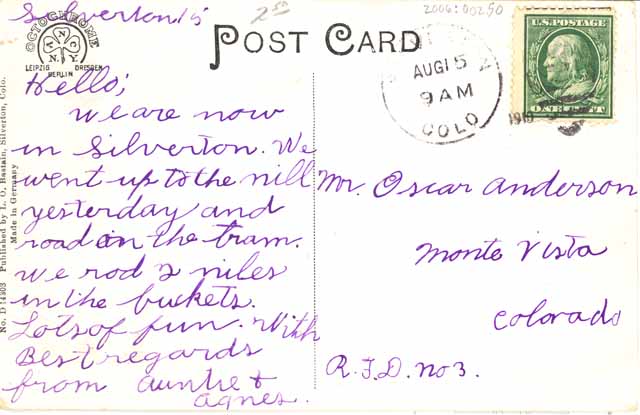 Silverton 15
2 50
2006:00250
OCTOCHROME
A N C N.Y.
LEIPZIG DRESDEN
BERLIN
POST CARD
AUG 15
9 AM
COLO
1910
U.S. POSTAGE
ONE CENT
Hello,
we are now
in Silverton. We
went up to the mill
yesterday and
road in the tram.
We rod 2 miles
in the buckets.
Lots of fun. With
Best regards
from auntie &
agnes.
Mr. Oscar Anderson
Monte Vista
Colorado
R.F.D. No 3.
No. D 14903 Published by L. O. Bastain, Silverton, Colo.
Made in Germany